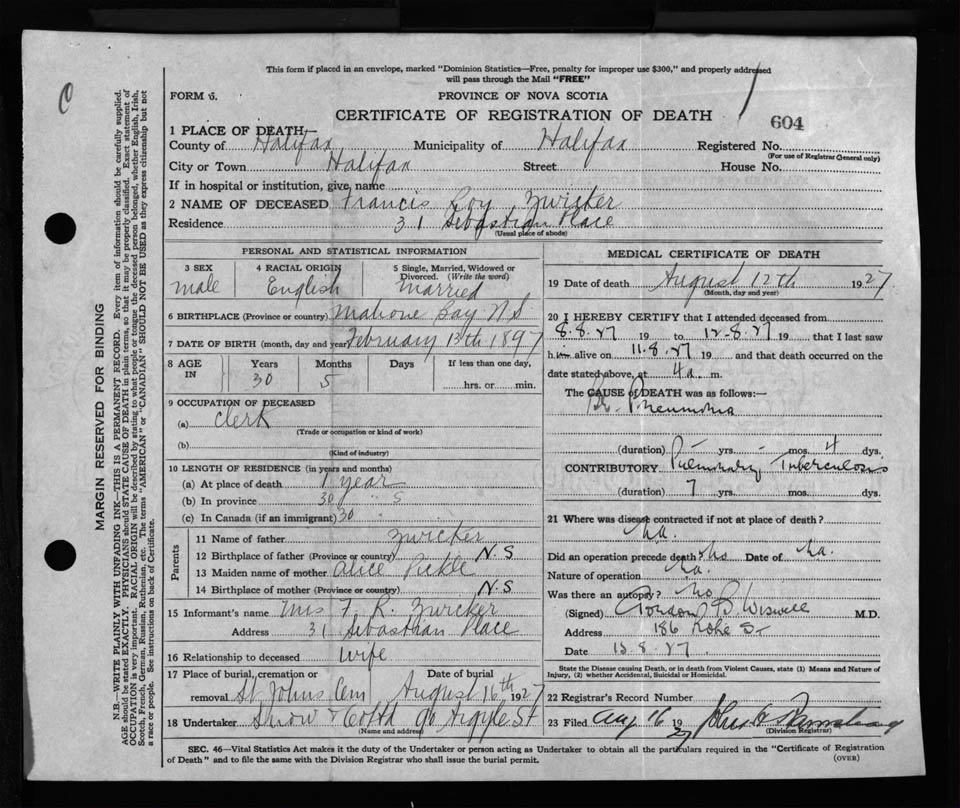 This form if placed in an envelope, marked "Dominion Statistics—Free, penalty for improper use $300," and properly addressed
will pass through the Mail "FREE"
FORM 6.
PROVINCE OF NOVA SCOTIA
CERTIFICATE OF REGISTRATION OF DEATH
604
1 PLACE OF DEATH—
County of Halifax Municipality of Halifax Registered No.
(For use of Registrar General only)
City or Town Halifax Street House No.
If in hospital or institution, give name
2 NAME OF DECEASED Francis Roy Zwicker
Residence 31 Sebastian Place
(Usual place of abode)
PERSONAL AND STATISTICAL INFORMATION
3 SEX
male
4 RACIAL ORIGIN
English
5 Single, Married, Widowed or
Divorced. (Write the word)
Married
6 BIRTHPLACE (Province or country) Mahone Bay N S
7 DATE OF BIRTH (month, day and year) February 13th 1897
8 AGE
IN
Years
30
Months
5
Days
If less than one day,
hrs. or min.
9 OCCUPATION OF DECEASED
(a) Clerk
(Trade or occupation or kind of work)
(b)
(Kind of industry)
10 LENGTH OF RESIDENCE (in years and months)
(a) At place of death 1 year
(b) In province 30 " 5
(c) In Canada (if an immigrant) 30
Parents
11 Name of father Zwicker
12 Birthplace of father (Province or country) N.S
13 Maiden name of mother Alice Pickle
14 Birthplace of mother (Province or country) N.S
15 Informant's name Mrs F. R. Zwicker
Address 31 Sebastian Place
16 Relationship to deceased Wife
17 Place of burial, cremation or
removal St Johns Cem
Date of burial
August 16th 1927
18 Undertaker Snow 90 Argyle St
(Name and address)
MEDICAL CERTIFICATE OF DEATH
19 Date of death August 12th 1927
(Month, day and year)
20 I HEREBY CERTIFY that I attended deceased from
8.8.27 19 to 12.8.27 19 that I last saw
him alive on 11.8.27 19 and that death occurred on
date stated above, at 4a m.
The CAUSE of DEATH was as follows:—
Br. Pneumonia
(duration) - yrs. - mos. 4 dys.
CONTRIBUTORY Pulmonary Tuberculosis
(duration) 7 yrs. mos. dys.
21 Where was disease contracted if not at place of death?
Na.
Did an operation precede death? No Date of Na.
Nature of operation Na.
Was there an autopsy? No
(Signed) Gordon B Wiswell M.D.
Address 186 St
Date 13.8.27.
State the Disease causing Death, or in death from Violent Causes, state (1) Means and Nature of
Injury, (2) whether Accidental, Suicidal or Homicidal.
22 Registrar's Record Number
23 Filed Aug 16 1927
(Division Registrar)
SEC. 46—Vital Statistics Act makes it the duty of the Undertaker or person acting as Undertaker to obtain all the particulars required in the "Certificate of Registration
of Death" and to file the same with the Division Registrar who shall issue the burial permit.
(OVER)
MARGIN RESERVED FOR BINDING
N.B.—WRITE PLAINLY WITH UNFADING INK—THIS IS A PERMANENT RECORD. Every item of information should be carefully supplied.
AGE should be stated EXACTLY. PHYSICIANS should STATE CAUSE OF DEATH in plain terms, so that it may be properly classified. Exact statement of
OCCUPATION is very important. RACIAL ORIGIN will be described by stating to what people or tongue the deceased person belonged, whether English, Irish,
Scotch, French, German, Russian, Ruthenian, etc. The terms "AMERICAN" or "CANADIAN" SHOULD NOT BE USED as they express citizenship but not
a race or people. See instructions on back of Certificate.